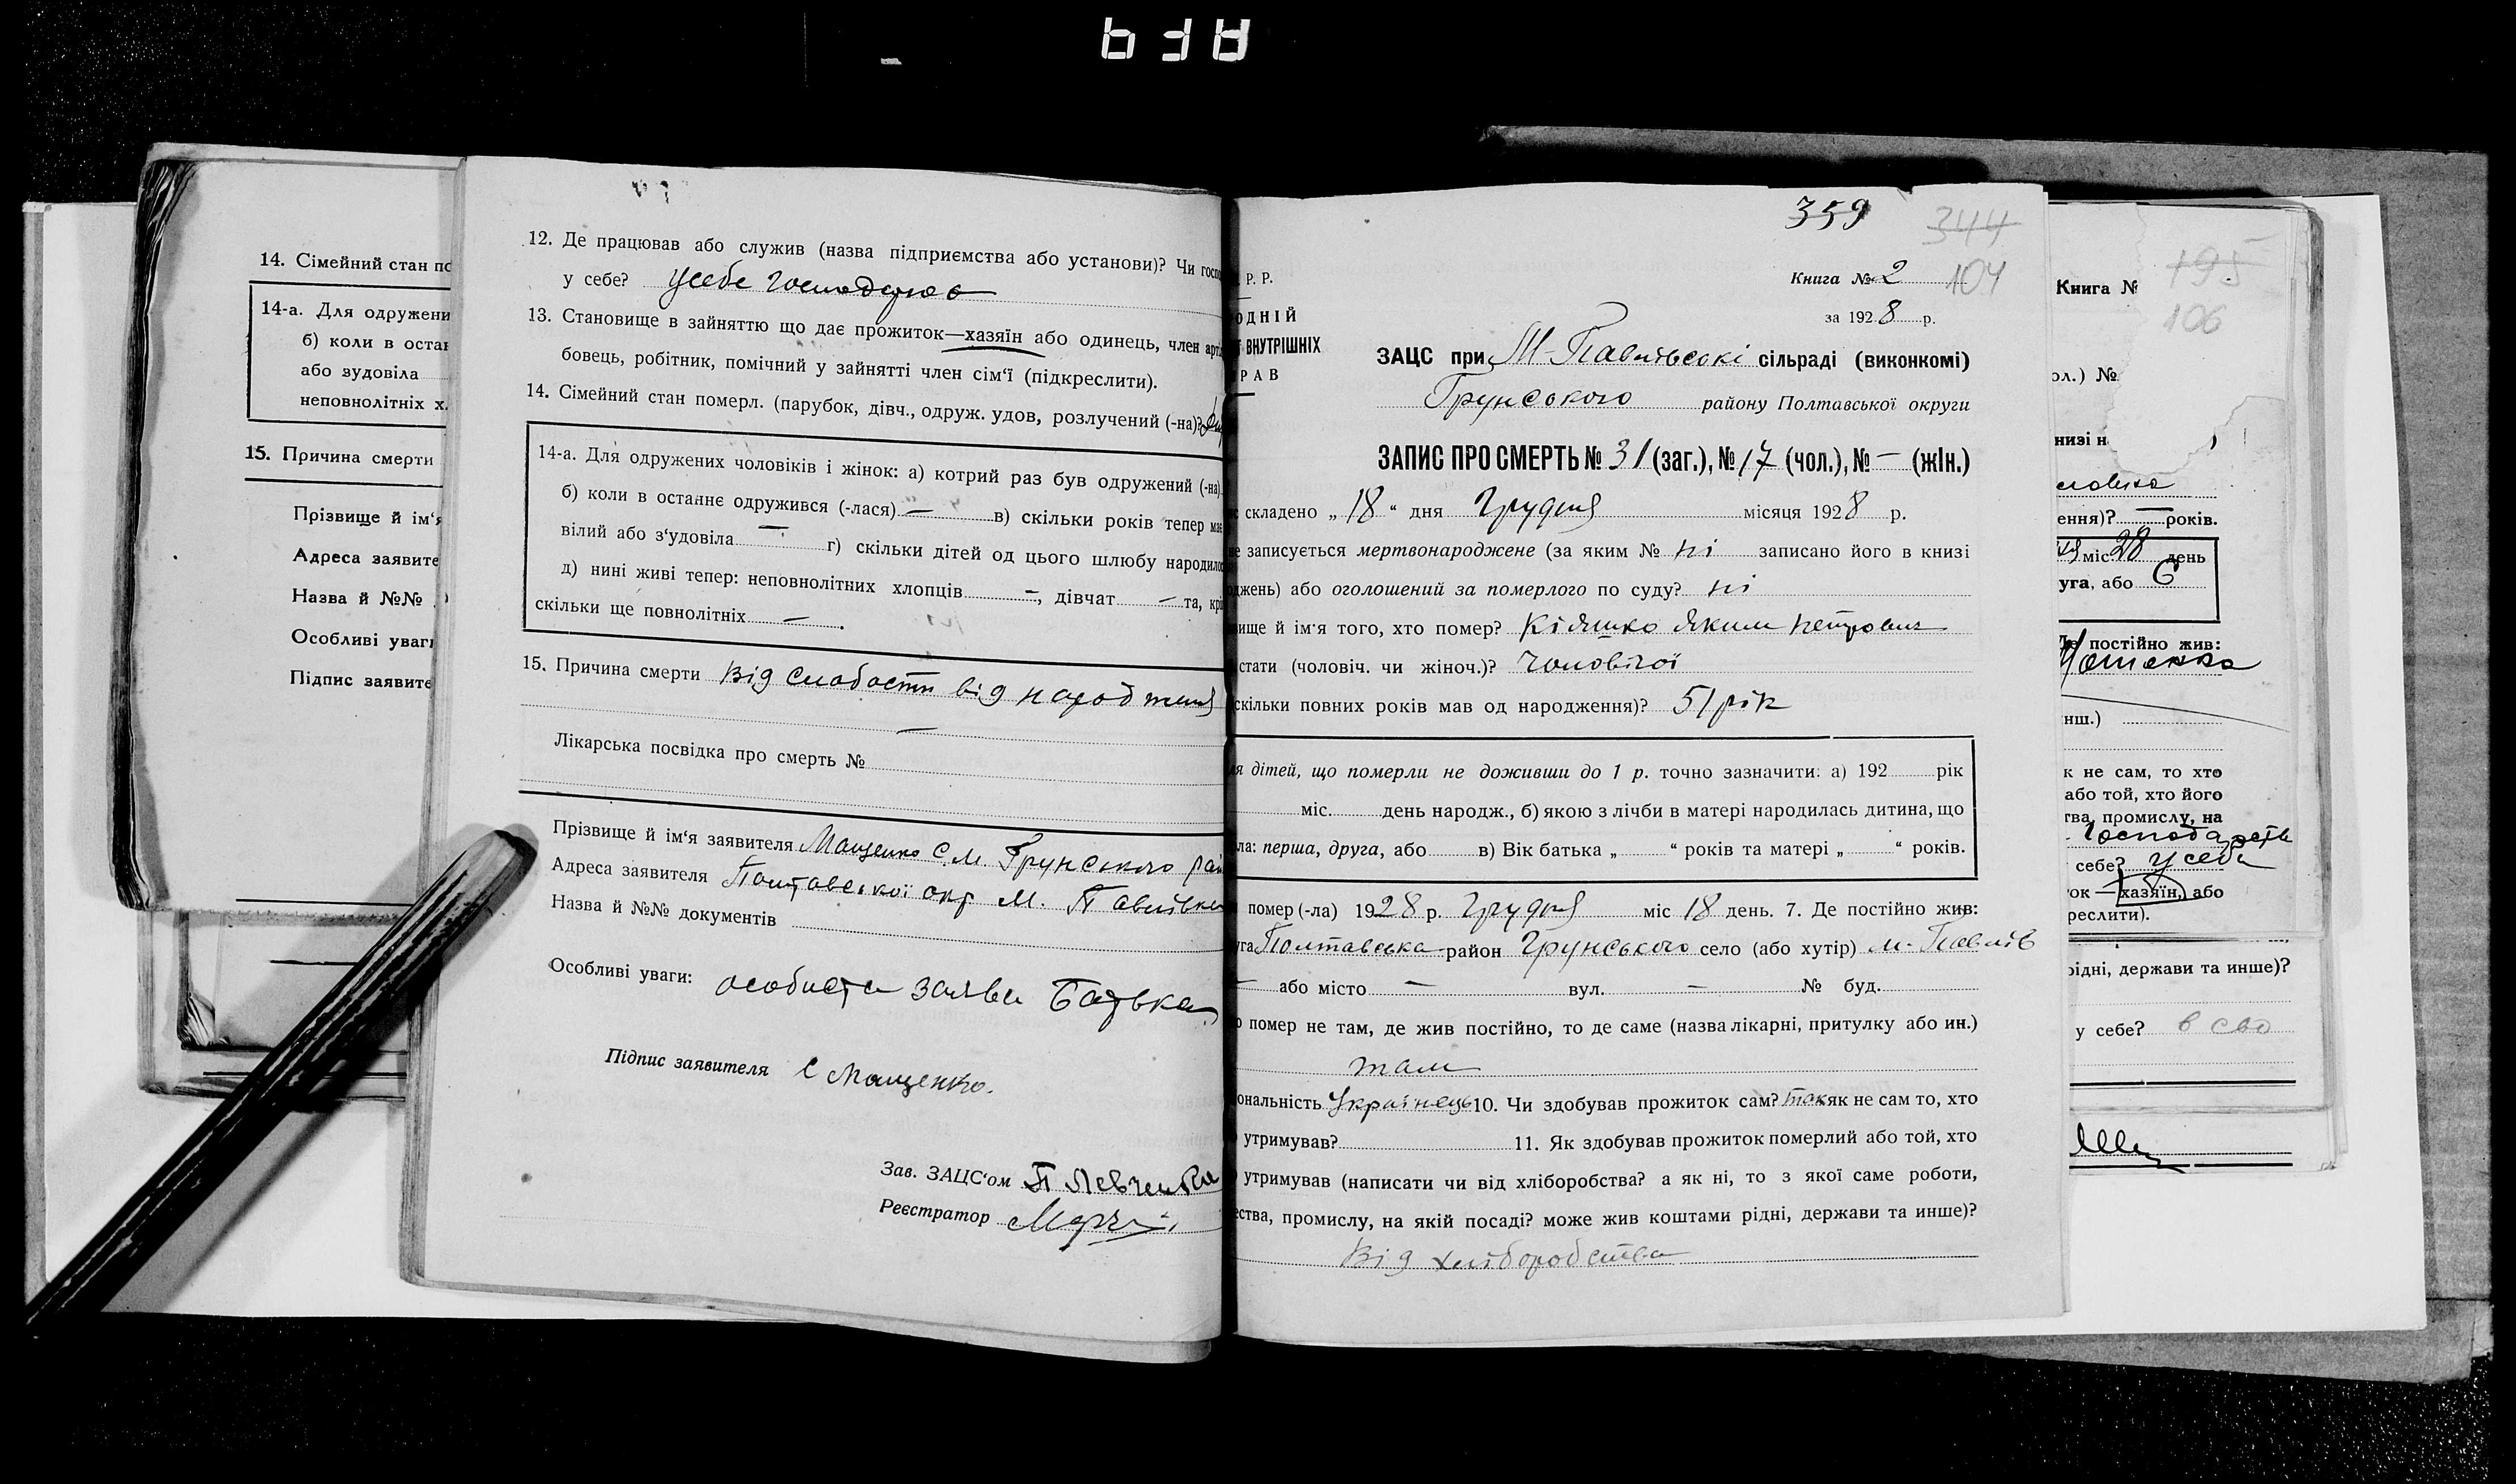 14. Сімейний стан по
14-а. Для одружени
б) коли в оста
або зудовіла
неповнолітніх х.
15. Причина смерти
Прізвище й ім‘я
Адреса заявите
Назва й №№
Особливі уваги
Підпис заявите
12. Де працював або служив (назва підприємства або установи)? Чи госпо
у себе? усебе господарює
13. Становище в зайняттю що дає прожиток—хазяїн або одинець, член арт
бовець, робітник, помічний у зайнятті член сім‘ї (підкреслити).
14. Сімейний стан померл. (парубок, дівч., одруж. удов, розлучений (-на)?
14-а. Для одружених чоловіків і жінок: а) котрий раз був одружений (-на)
б) коли в останнє одружився (-лася) — в) скільки років тепер має
вілий або з‘удовіла — г) скільки дітей од цього шлюбу народило
д) нині живі тепер: неповнолітних хлопців —, дівчат — та, крі
скільки ще повнолітніх — .
15. Причина смерти Від слабости від народження
—
Лікарська посвідка про смерть №
Прізвище й ім‘я заявителя Мащенко С.М. Грунського рай
Адреса заявителя Полтавської окр М. Павлівка
Назва й №№ документів
Особливі уваги: особиста заява Батька
Підпис заявителя С Мащенко.
Зав. ЗАЦС‘ом П Левченко
Реєстратор
359 344
Р. Р.
Книга № 2 104
ОДНІЙ
за 1928 р.
ВНУТРІШНІХ
РАВ
ЗАЦС при М-Павлівські сільраді (виконкомі)
Грунського району Полтавської округи
ЗАПИС ПРО СМЕРТЬ № 31 (заг.), № 17 (чол.), № — (жін.)
складено „18“ дня Грудня місяця 1928 р.
не записується мертвонароджене (за яким № ні записано його в книзі
джень) або оголошений за померлого по суду? ні
вище й ім‘я того, хто помер? Кіяшко Яким Петрович
стати (чоловіч. чи жіноч.)? Чоловічої
скільки повних років мав од народження)? 51 рік
я дітей, що померли не доживши до 1 р. точно зазначити: а) 192 рік
міс. день народж., б) якою з лічби в матері народилась дитина, що
ла: перша, друга, або в) Вік батька „ “ років та матері „ “ років.
помер (-ла) 1928 р. Грудня міс 18 день. 7. Де постійно жив:
уга Полтавська район Грунського село (або хутір) м-Павлів
— або місто — вул. — № буд.
о помер не там, де жив постійно, то де саме (назва лікарні, притулку або ин.)
там
ональність Українець 10. Чи здобував прожиток сам? так як не сам то, хто
утримував? 11. Як здобував прожиток померлий або той, хто
утримував (написати чи від хліборобства? а як ні, то з якої саме роботи,
ества, промислу, на якій посаді? може жив коштами рідні, держави та инше)?
Від хліборобства
195
Книга №
106
ол.) №
низі н
еловіка
ення)? — років.
міс 28 день
уга, або 6
Де постійно жив:
нш.)
к не сам, то хто
або той, хто його
тва, промислу, на
господарств
себе? у себе
ок — хазяїн, або
реслити).
рідні, держави та инше)?
у себе? в сво